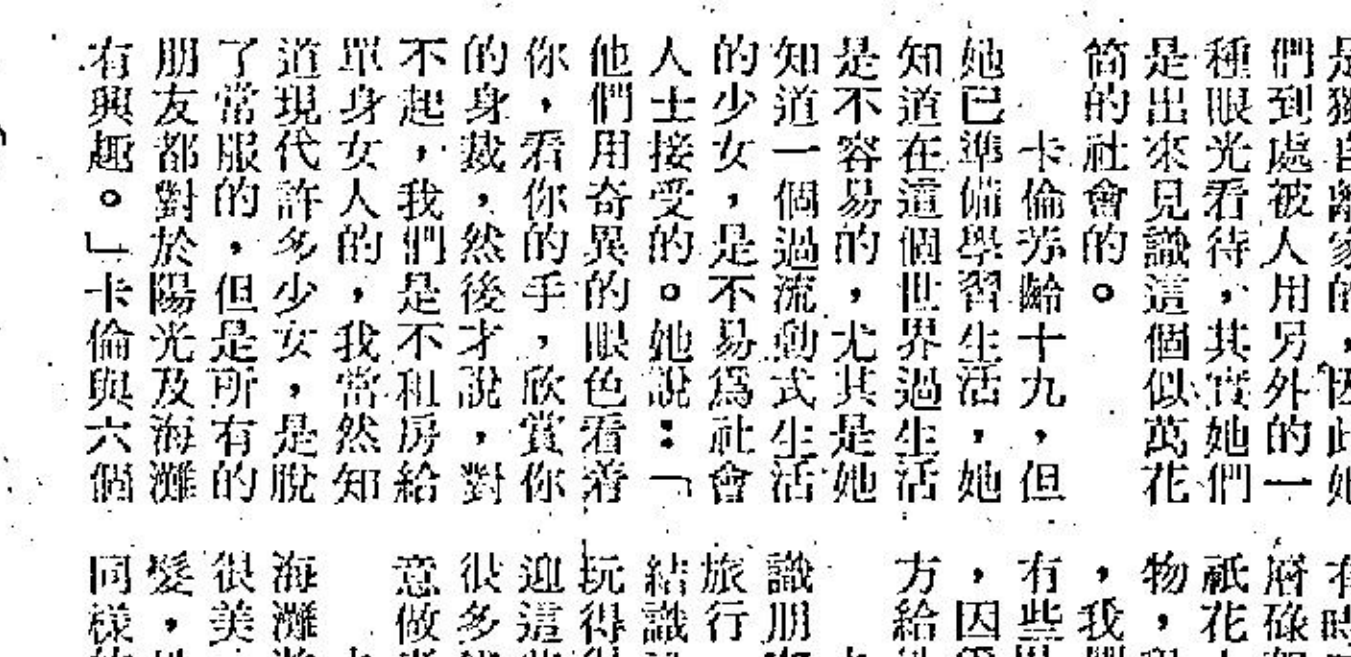 是獨自離家的，因此她
們到處被人用另外的一
種眼光看待，其實她們
是出來見識這個似萬花
筒的社會的。
卡倫芳齡十九，但
她已準備學習生活，她
知道在這個世界過生活
是不容易的，尤其是她
知道一個過流動式生活
的少女，是不易爲社會
人士接受的。她說：「
他們用奇異的眼色看着
你，看你的手，欣賞你
的身裁，然後才說，對
不起，我們是不租房給
單身女人的，我當然知
道現代許多少女，是脫
了常服的，但是所有的
朋友都對於陽光及海灘
有興趣。」卡倫與六個
有時
府碌
祇花
物，
，我
有些
，因
方給
識朋
旅行
結識
玩得
迎這
很多
意做
海灘
很美
髮，
同樣